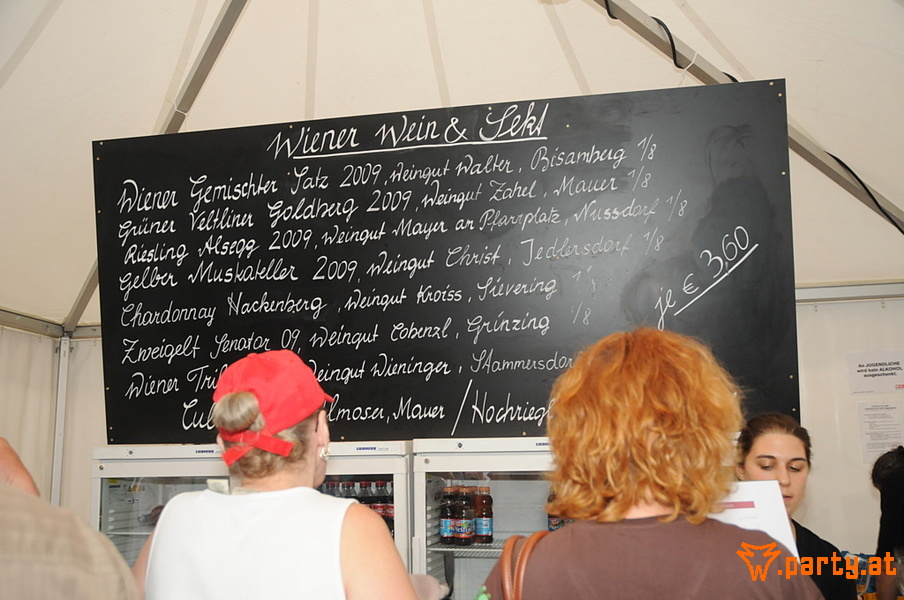 Wiener Wein & Sekt
Wiener Gemischter Satz 2009, Weingut Walter, Bisamberg 1/8
Grüner Veltliner Goldberg 2009, Weingut Zahel, Mauer 1/8
Riesling Alsegg 2009, Weingut Mayer am Pfarrplatz, Nussdorf 1/8
Gelber Muskateller 2009, Weingut Christ, Jedlersdorf 1/8
Chardonnay Hackenberg, Weingut Kroiss, Sievering
Zweigelt Senator 09, Weingut Cobenzl, Grinzing 1/8
Wiener Weingut Wieninger, Stammersdorf
Mauer / Hochriegl
je € 3,60
An JUGENDLICHE
wird kein ALKOHOL
ausgeschenkt.
LIEBHERR LIEBHERR LIEBHERR
party.at